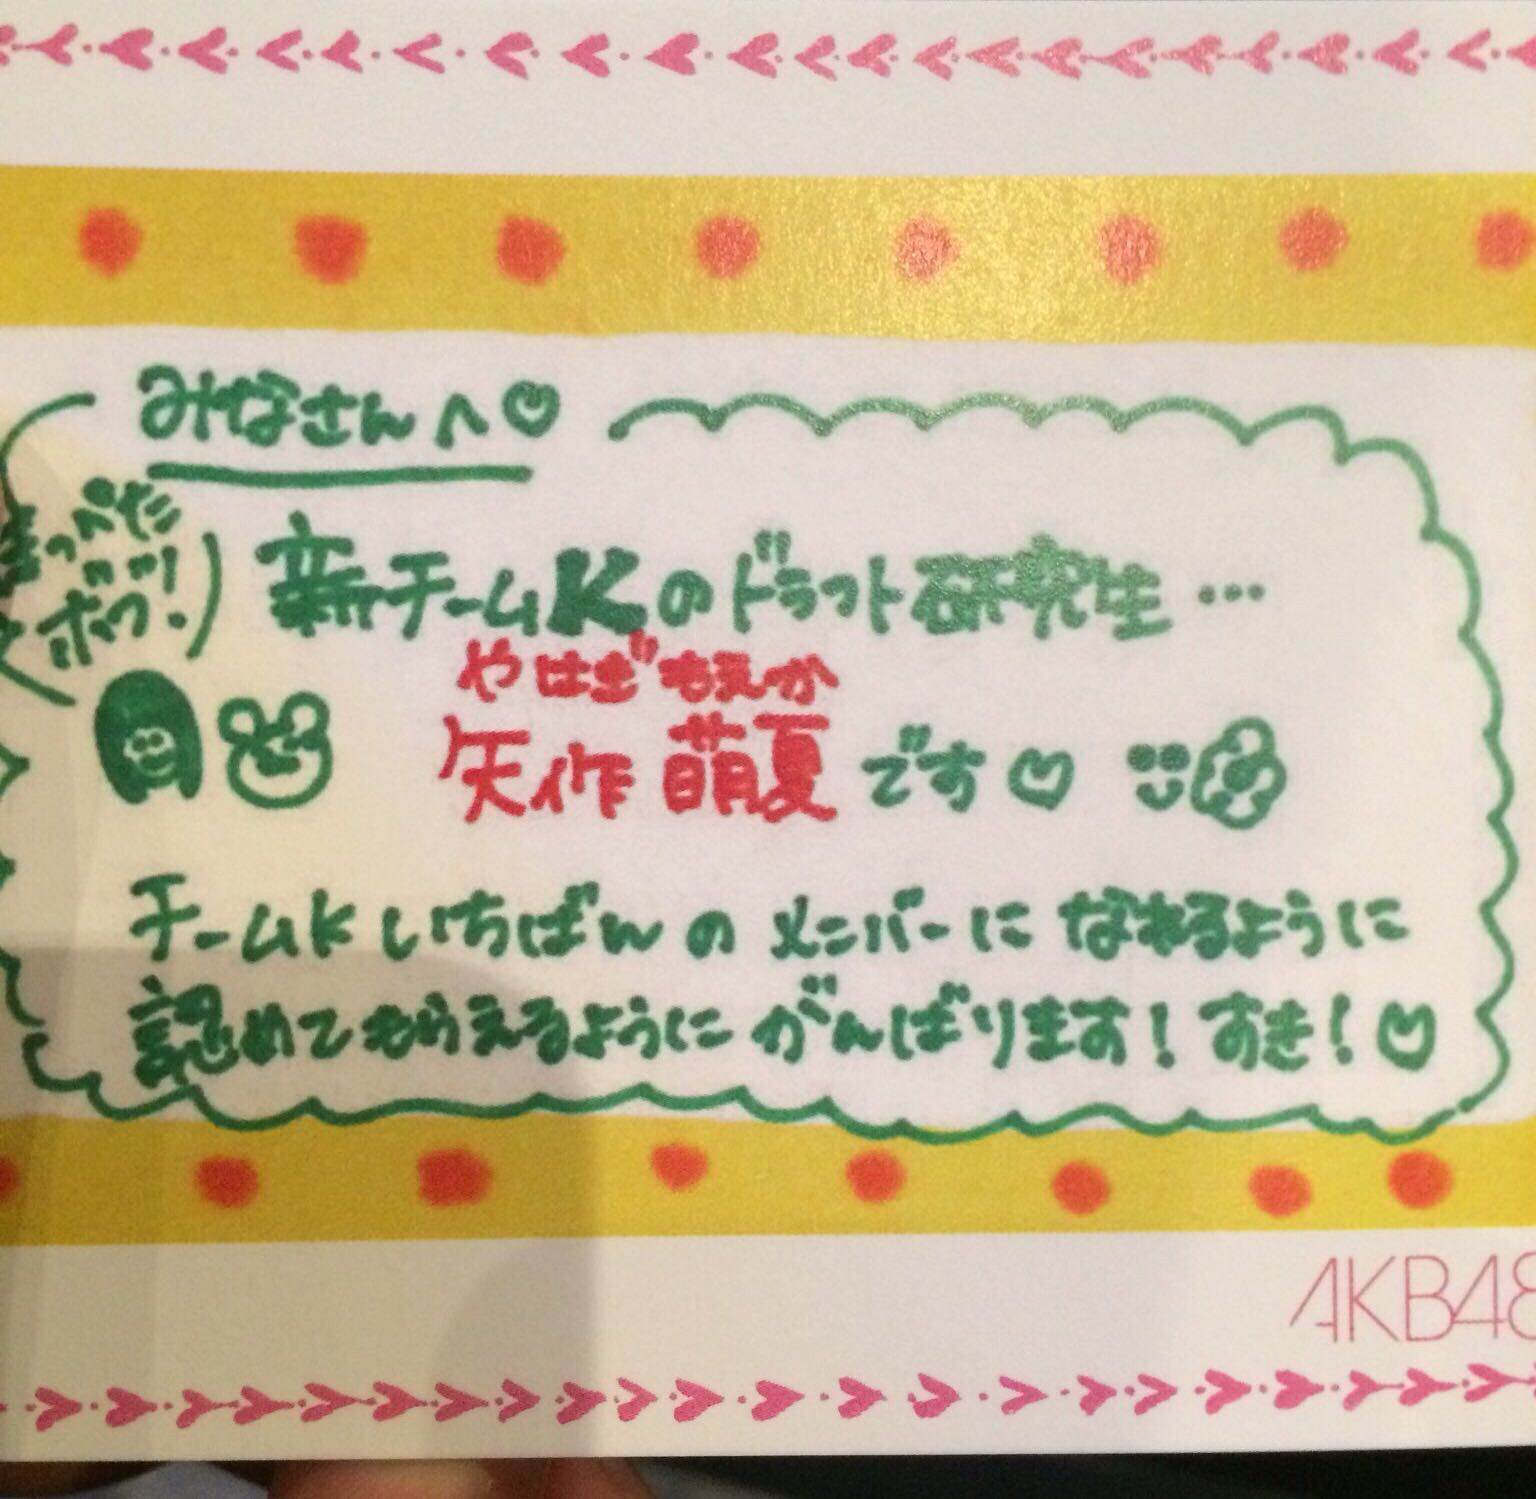 みなさんへ♡
ほっぺた
ボワ!
新チームKのドラフト研究生…
やはぎもえか
矢作萌夏です♡
チームKいちばんのメンバーになれるように
認めてもらえるようにがんばります!すき!♡
AKB48